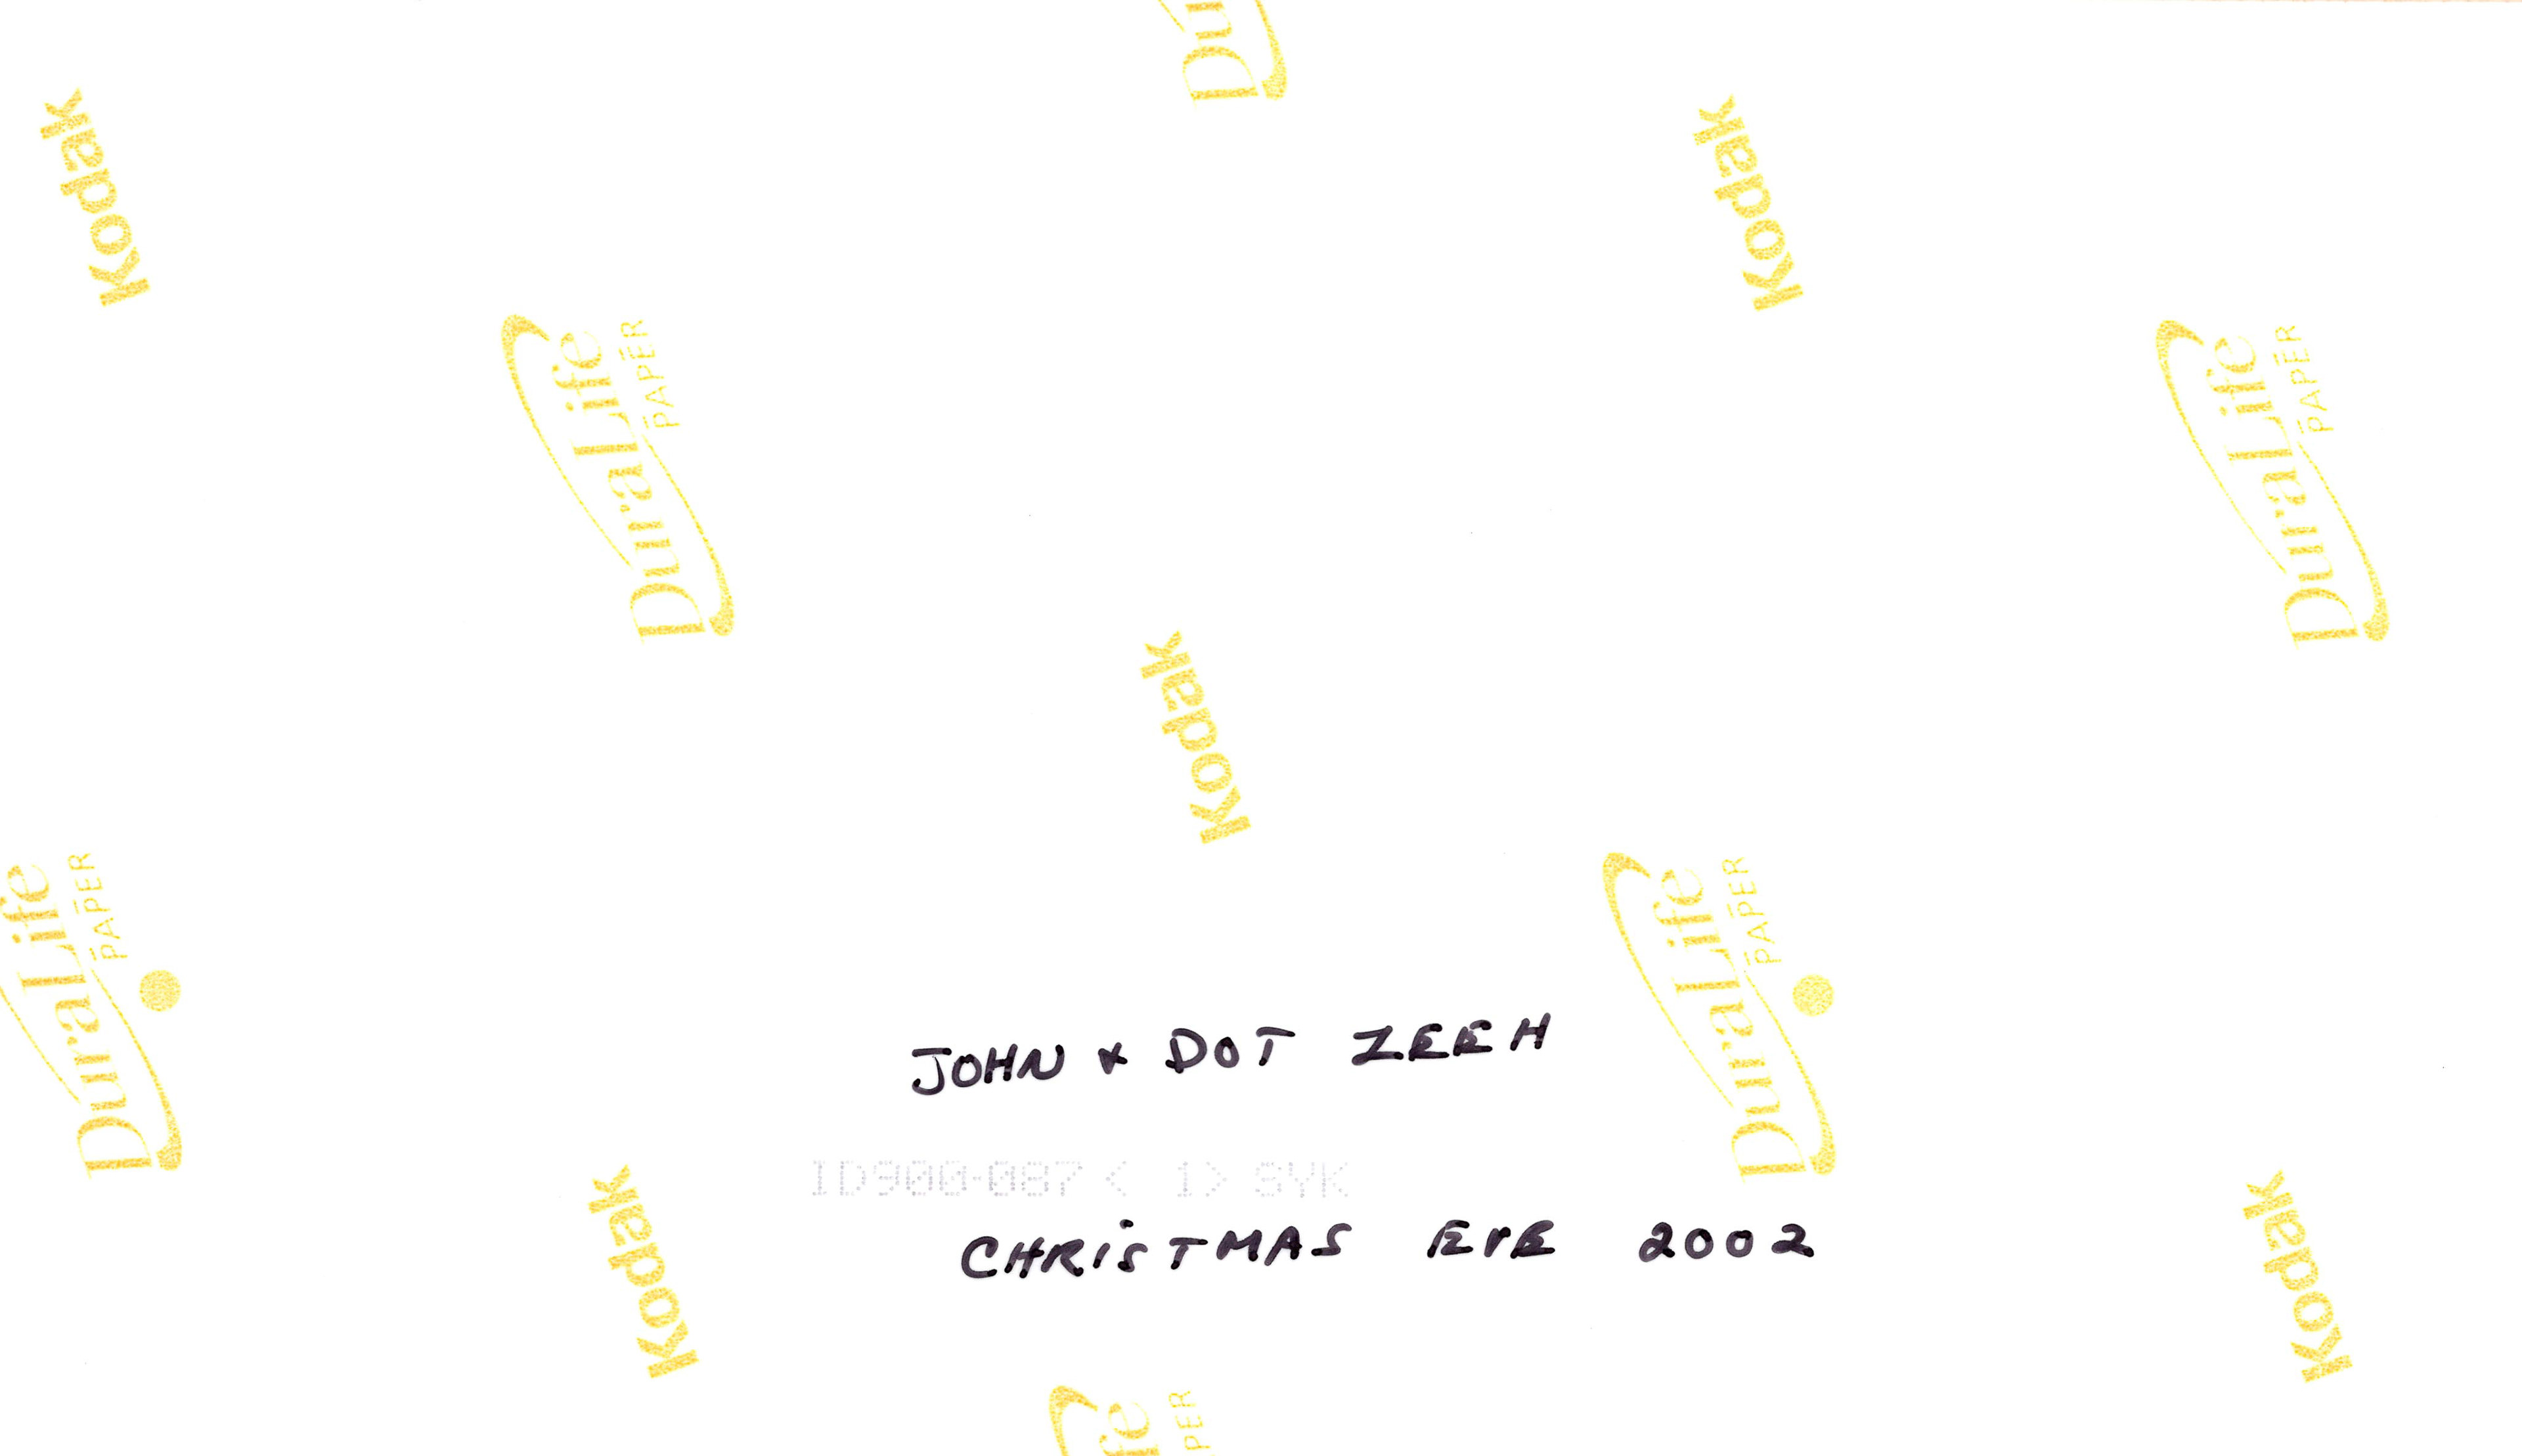 Du
Kodak
Kodak
DuraLife
PAPER
DuraLife
PAPER
Kodak
DuraLife
PAPER
DuraLife
PAPER
JOHN & DOT ZEEH
ID900-087< 1> SYK
CHRISTMAS EVE 2002
Kodak
Kodak
fe
PER